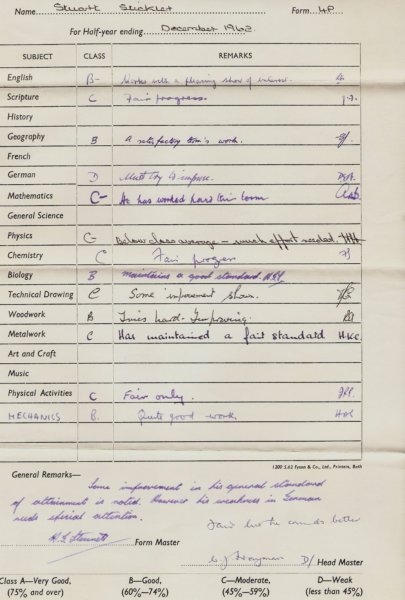 Name Stuart Stickler Form 4P
For Half-year ending December 1962
SUBJECT CLASS REMARKS
English B- Works with a pleasing show of interest.
Scripture C Fair progress.
History
Geography B A satisfactory term's work.
French
German D Must try to improve.
Mathematics C- He has worked hard this term
General Science
Physics C- Below class average - much effort needed.
Chemistry C Fair progress
Biology B Maintains a good standard.
Technical Drawing C Some improvement shown.
Woodwork B Tries hard - Improving.
Metalwork C Has maintained a fair standard
Art and Craft
Music
Physical Activities C Fair only.
MECHANICS B. Quite good work
1200 5.62 Tyson & Co., Ltd., Printers, Bath
General Remarks—
Some improvement in his general standard
of attainment is noted. However his weakness in German
needs special attention.
Fair but he can do better
Form Master
Head Master
Class A—Very Good, B—Good, C—Moderate, D—Weak
(75% and over) (60%—74%) (45%—59%) (less than 45%)